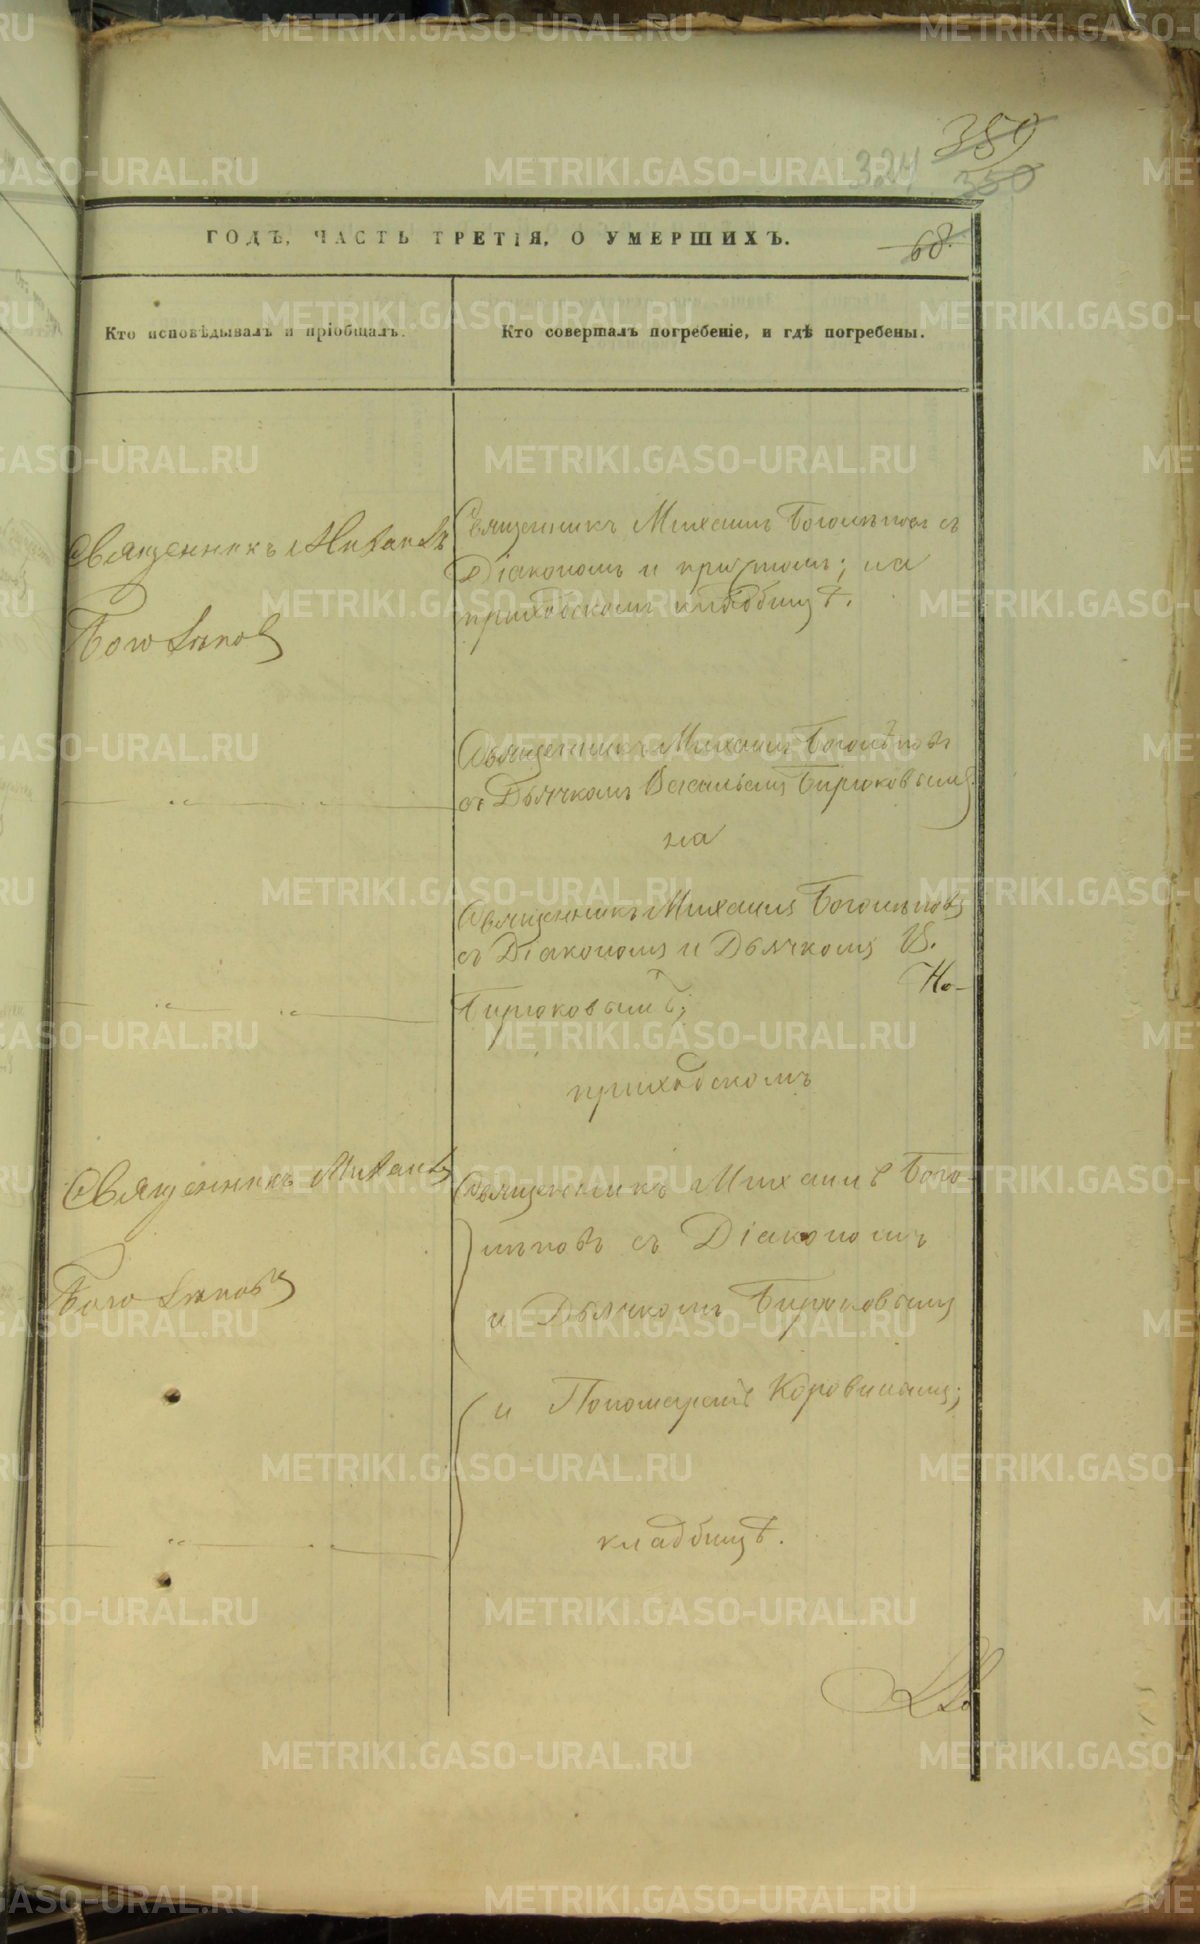 METRIKI.GASO-URAL.RU
324 359
350
ГОДЪ, ЧАСТЬ ТРЕТІЯ, О УМЕРШИХЪ.
68.
Кто исповѣдывалъ и пріобщалъ.
Кто совершалъ погребеніе, и гдѣ погребены.
Священникъ Михаилъ
Боголѣповъ
Священникъ Михаилъ Боголѣповъ съ
Діакономъ и причтомъ; на
приходскомъ кладбищѣ.
Священникъ Михаилъ Боголѣповъ
съ Дьячкомъ Васильемъ Бирюковымъ
на
Священникъ Михаилъ Боголѣповъ
съ Діакономъ и Дьячкомъ В.
Бирюковымъ;
приходскомъ
Священникъ Михаилъ
Боголѣповъ
Священникъ Михаилъ Бого-
лѣповъ съ Діакономъ
и Дьячкомъ Бирюковымъ
и Пономаремъ Коровинымъ;
кладбищѣ.